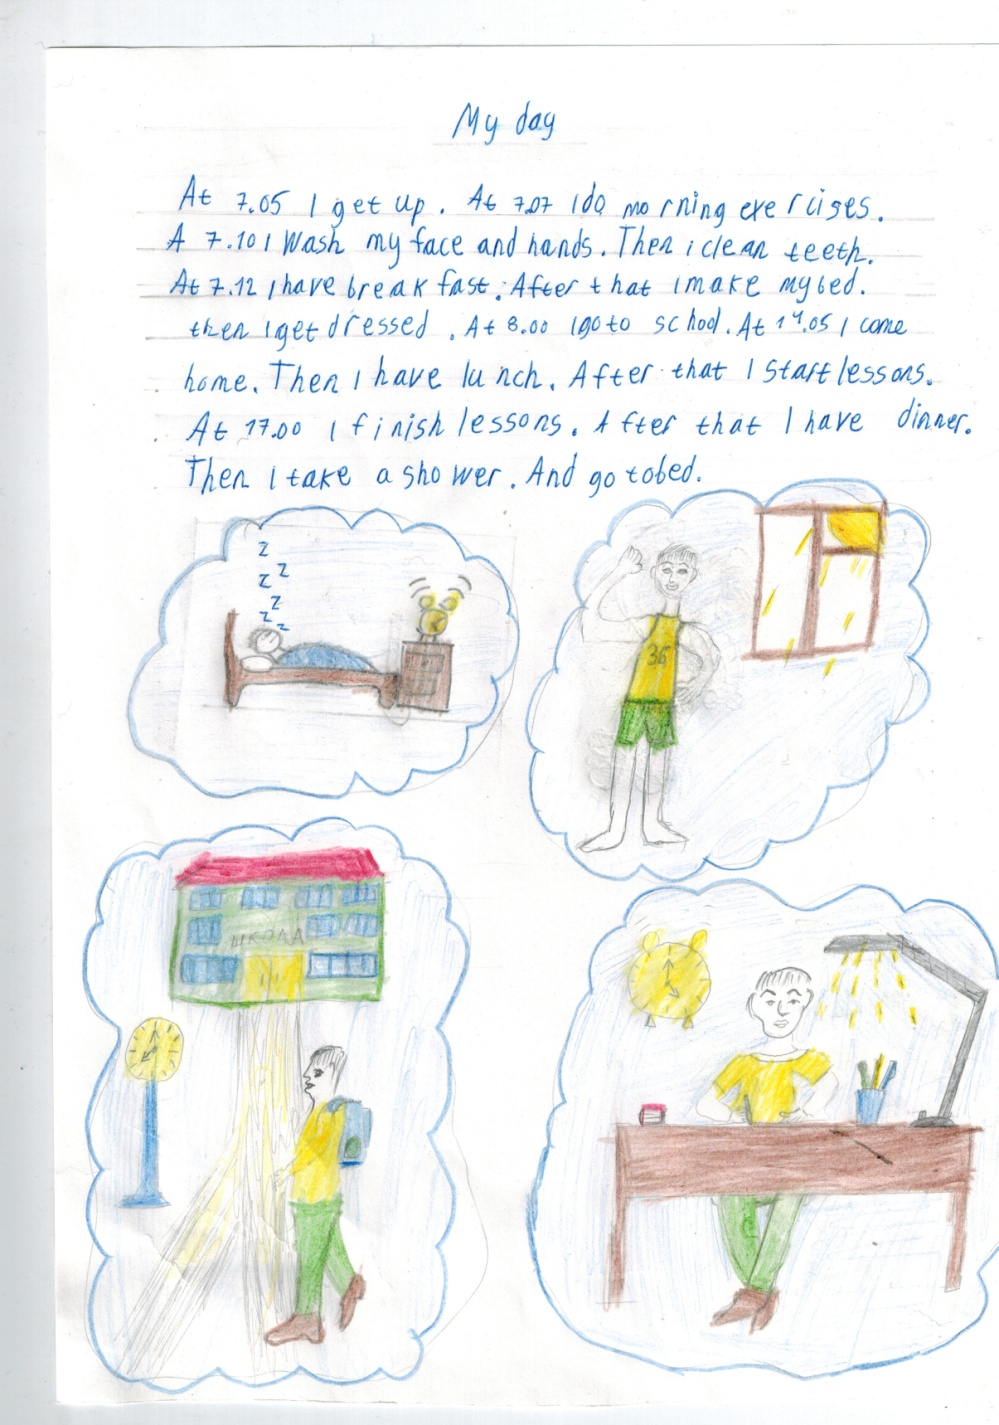 My day
At 7.05 I get up. At 7.07 I do morning exercises.
A 7.10 I Wash my face and hands. Then i clean teeth.
At 7.12 I have breakfast. After that I make my bed.
then I get dressed. At 8.00 I go to school. At 14.05 I come
home. Then I have lunch. After that I start lessons.
At 17.00 I finish lessons. After that I have dinner.
Then I take a shower. And go to bed.
z
z z
z
z z
36
ШКОЛА